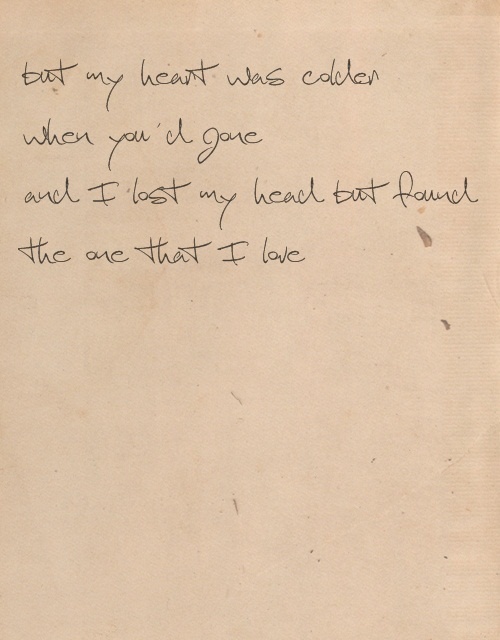 but my heart was colder
when you'd gone
and I lost my head but found
the one that I love